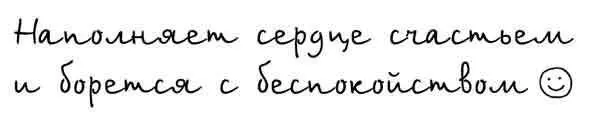 Наполняет сердце счастьем
и борется с беспокойством☺